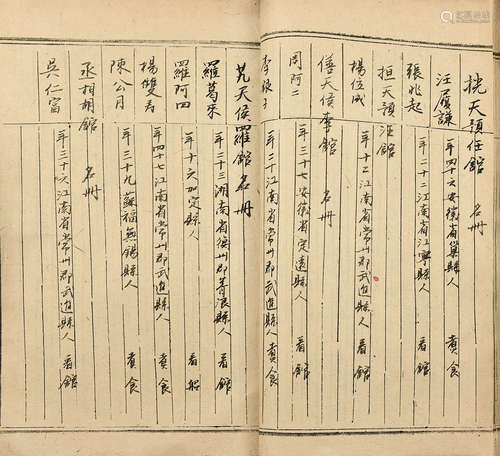 天預任館 名冊
汪履謙 年四十六安徽省巢縣人 煮食
張兆起 年二十二江南省江寧縣人 看館
天預汪館
楊伍成 年十二江南省常州郡武進縣人 看館
天侯李館 名冊
周阿二 年三十七安徽省定遠縣人 看館
李 子 年二十江南省常州郡武進縣人 煮食
天侯羅館 名冊
羅葛來 年二十三湖南省 州郡 縣人 看館
羅阿四 年十六加定縣人 看船
楊雙壽 年四十七江南省常州郡武進縣人 煮食
陳公月 年三十九蘇福無錫縣人 煮食
丞相胡館 名冊
吳仁富 年三十六江南省常州郡武進縣人 看館